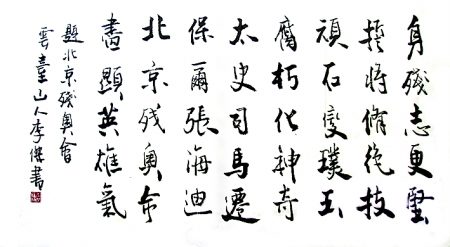 身殘志更堅
將脩絶技
頑石變璞玉
腐朽化神奇
太史司馬遷
保爾張海迪
北京残奥
盡顯英雄氣
題北京残奥會
雲臺山人李傑書